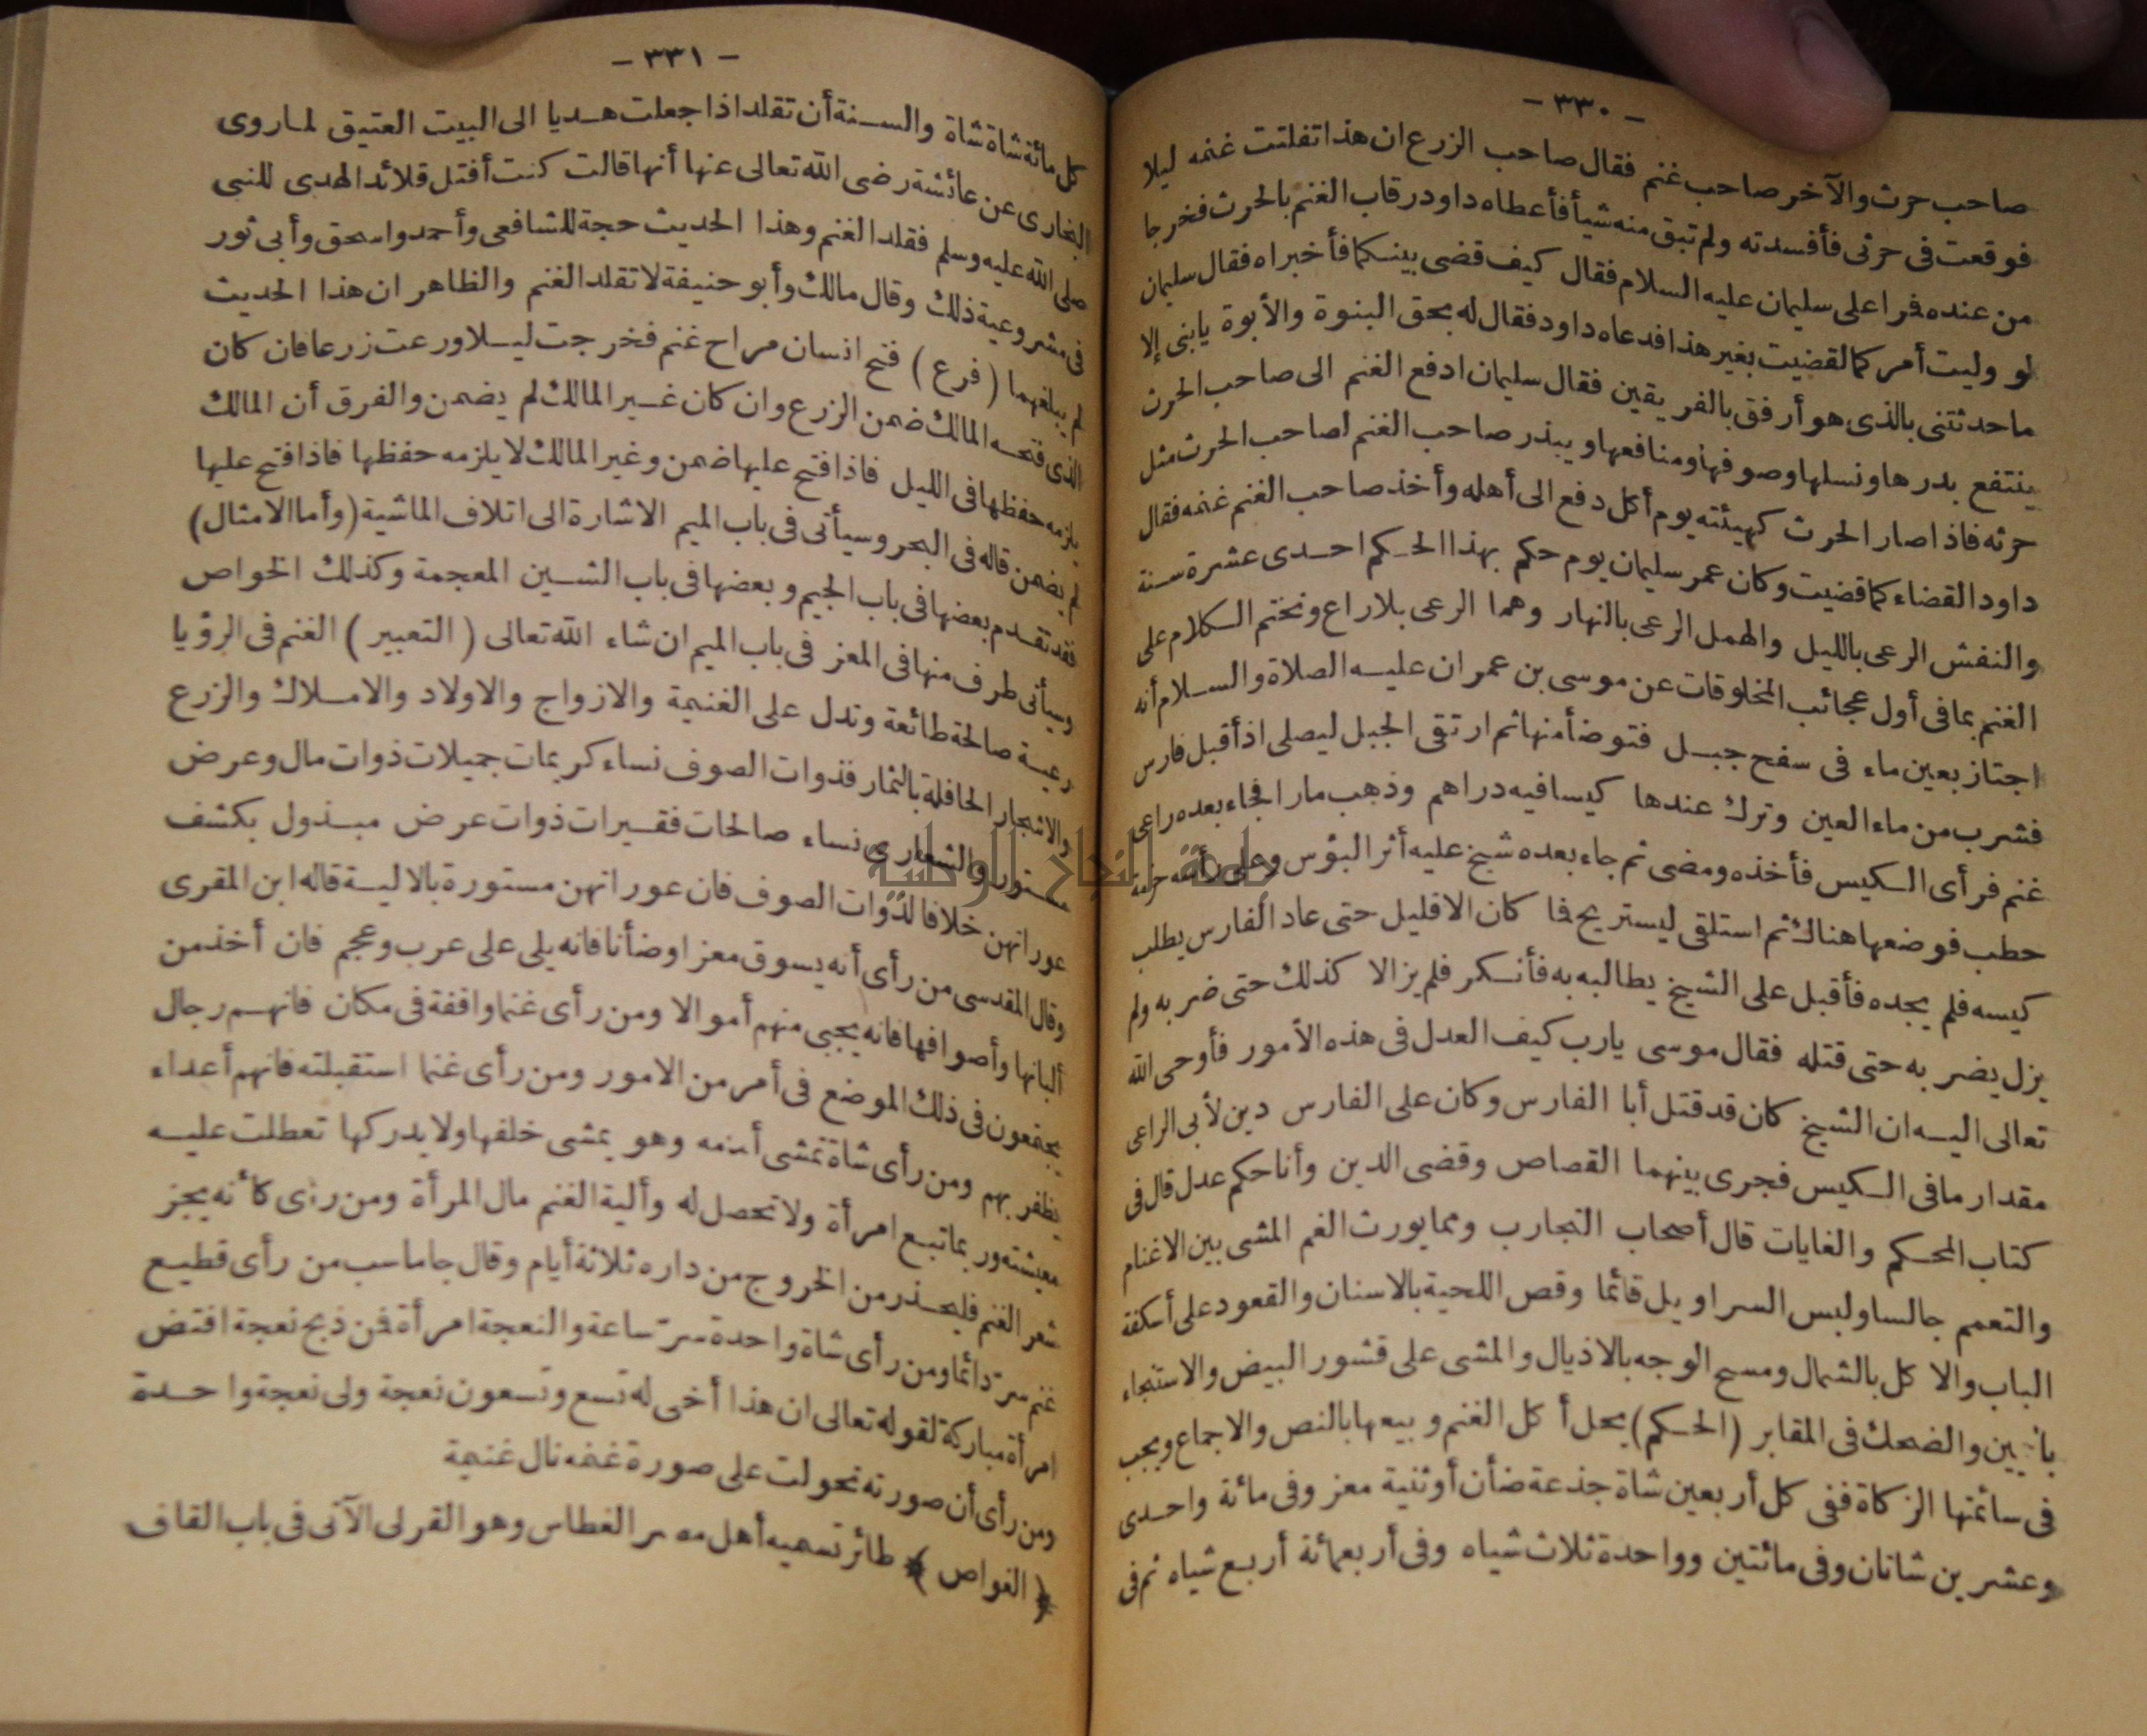 - ٣٣٠ -
صاحب حرث والآخر صاحب غنم فقال صاحب الزرع ان هذا تفلتت غنمه ليلا
فوقعت فى حرثى فأفسدته ولم تبق منه شيأ فأعطاه داود رقاب الغنم بالحرث فخرجا
من عنده فمرا على سليمان عليه السلام فقال كيف قضى بينكما فأخبراه فقال سليمان
لو وليت أمركما لقضيت بغير هذا فدعاه داود فقال له بحق البنوة والأبوة يابنى إلا
ما حدثتنى بالذى هو أرفق بالفريقين فقال سليمان ادفع الغنم الى صاحب الحرث
ينتفع بدرها ونسلها وصوفها ومنافعها ويبذر صاحب الغنم لصاحب الحرث مثل
حرثه فاذا صار الحرث كهيئته يوم أكل دفع الى أهله وأخذ صاحب الغنم غنمه فقال
داود القضاء كما قضيت وكان عمر سليمان يوم حكم بهذا الحكم احدى عشرة سنة
والنفش الرعى بالليل والهمل الرعى بالنهار وهما الرعى بلا راع ونختم الكلام على
الغنم بما فى أول عجائب المخلوقات عن موسى بن عمران عليه الصلاة والسلام أنه
اجتاز بعين ماء فى سفح جبل فتوضأ منها ثم ارتقى الجبل ليصلى اذ أقبل فارس
فشرب من ماء العين وترك عندها كيسا فيه دراهم وذهب مارا فجاء بعده راعى
غنم فرأى الكيس فأخذه ومضى ثم جاء بعده شيخ عليه أثر البؤس وعلى رأسه حزمة
حطب فوضعها هناك ثم استلقى ليستريح فما كان الا قليل حتى عاد الفارس يطلب
كيسه فلم يجده فأقبل على الشيخ يطالبه به فأنكر فلم يزالا كذلك حتى ضربه ولم
يزل يضربه حتى قتله فقال موسى يارب كيف العدل فى هذه الأمور فأوحى الله
تعالى اليه ان الشيخ كان قد قتل أبا الفارس وكان على الفارس دين لأبى الراعى
مقدار ما فى الكيس فجرى بينهما القصاص وقضى الدين وأنا حكم عدل قال فى
كتاب المحكم والغايات قال أصحاب التجارب ومما يورث الغم المشى بين الاغنام
والتعمم جالسا ولبس السراويل قائما وقص اللحية بالاسنان والقعود على أسكفة
الباب والاكل بالشمال ومسح الوجه بالاذيال والمشى على قشور البيض والاستنجاء
باليمين والضحك فى المقابر (الحكم) يحل أكل الغنم وبيعها بالنص والاجماع ويجب
فى سائمتها الزكاة ففى كل أربعين شاة جذعة ضأن أو ثنية معز وفى مائة واحدى
وعشرين شاتان وفى مائتين وواحدة ثلاث شياه وفى أربعمائة أربع شياه ثم فى
- ٣٣١ -
كل مائة شاة شاة والسنة أن تقلد اذا جعلت هديا الى البيت العتيق لما روى
البخارى عن عائشة رضى الله تعالى عنها أنها قالت كنت أفتل قلائد الهدى للنبى
صلى الله عليه وسلم فقلد الغنم وهذا الحديث حجة للشافعى وأحمد واسحق وأبى ثور
فى مشروعية ذلك وقال مالك وأبو حنيفة لا تقلد الغنم والظاهر ان هذا الحديث
لم يبلغهما (فرع) فتح انسان مراح غنم فخرجت ليلا ورعت زرعا فان كان
الذى فتحه المالك ضمن الزرع وان كان غير المالك لم يضمن والفرق أن المالك
يلزمه حفظها فى الليل فاذا فتح عليها ضمن وغير المالك لا يلزمه حفظها فاذا فتح عليها
لم يضمن قاله فى البحر وسيأتى فى باب الميم الاشارة الى اتلاف الماشية (وأما الامثال)
فقد تقدم بعضها فى باب الجيم وبعضها فى باب الشين المعجمة وكذلك الخواص
وسيأتى طرف منها فى المعز فى باب الميم ان شاء الله تعالى (التعبير) الغنم فى الرؤيا
رعية صالحة طائعة وتدل على الغنيمة والازواج والاولاد والاملاك والزرع
والاشجار الحافلة بالثمار فذوات الصوف نساء كريمات جميلات ذوات مال وعرض
مستور والشعارى نساء صالحات فقيرات ذوات عرض مبذول بكشف
عوراتهن خلافا لذوات الصوف فان عوراتهن مستورة بالالية قاله ابن المقرى
وقال المقدسى من رأى أنه يسوق معزا وضأنا فانه يلى على عرب وعجم فان أخذ من
ألبانها وأصوافها فانه يجبى منهم أموالا ومن رأى غنما واقفة فى مكان فانهم رجال
يجتمعون فى ذلك الموضع فى أمر من الامور ومن رأى غنما استقبلته فانهم أعداء
يظفر بهم ومن رأى شاة تمشى أمامه وهو يمشى خلفها ولا يدركها تعطلت عليه
معيشته وربما تبع امرأة ولا تحصل له وألية الغنم مال المرأة ومن رأى كأنه يجز
شعر الغنم فليحذر من الخروج من داره ثلاثة أيام وقال جاماسب من رأى قطيع
غنم سر دائما ومن رأى شاة واحدة سر ساعة والنعجة امرأة فمن ذبح نعجة افتض
امرأة مباركة لقوله تعالى ان هذا أخى له تسع وتسعون نعجة ولى نعجة واحدة
ومن رأى أن صورته تحولت على صورة غنمه نال غنيمة
﴿الغواص﴾ طائر تسميه أهل مصر الغطاس وهو القرلى الآتى فى باب القاف
جامعة النجاح الوطنية